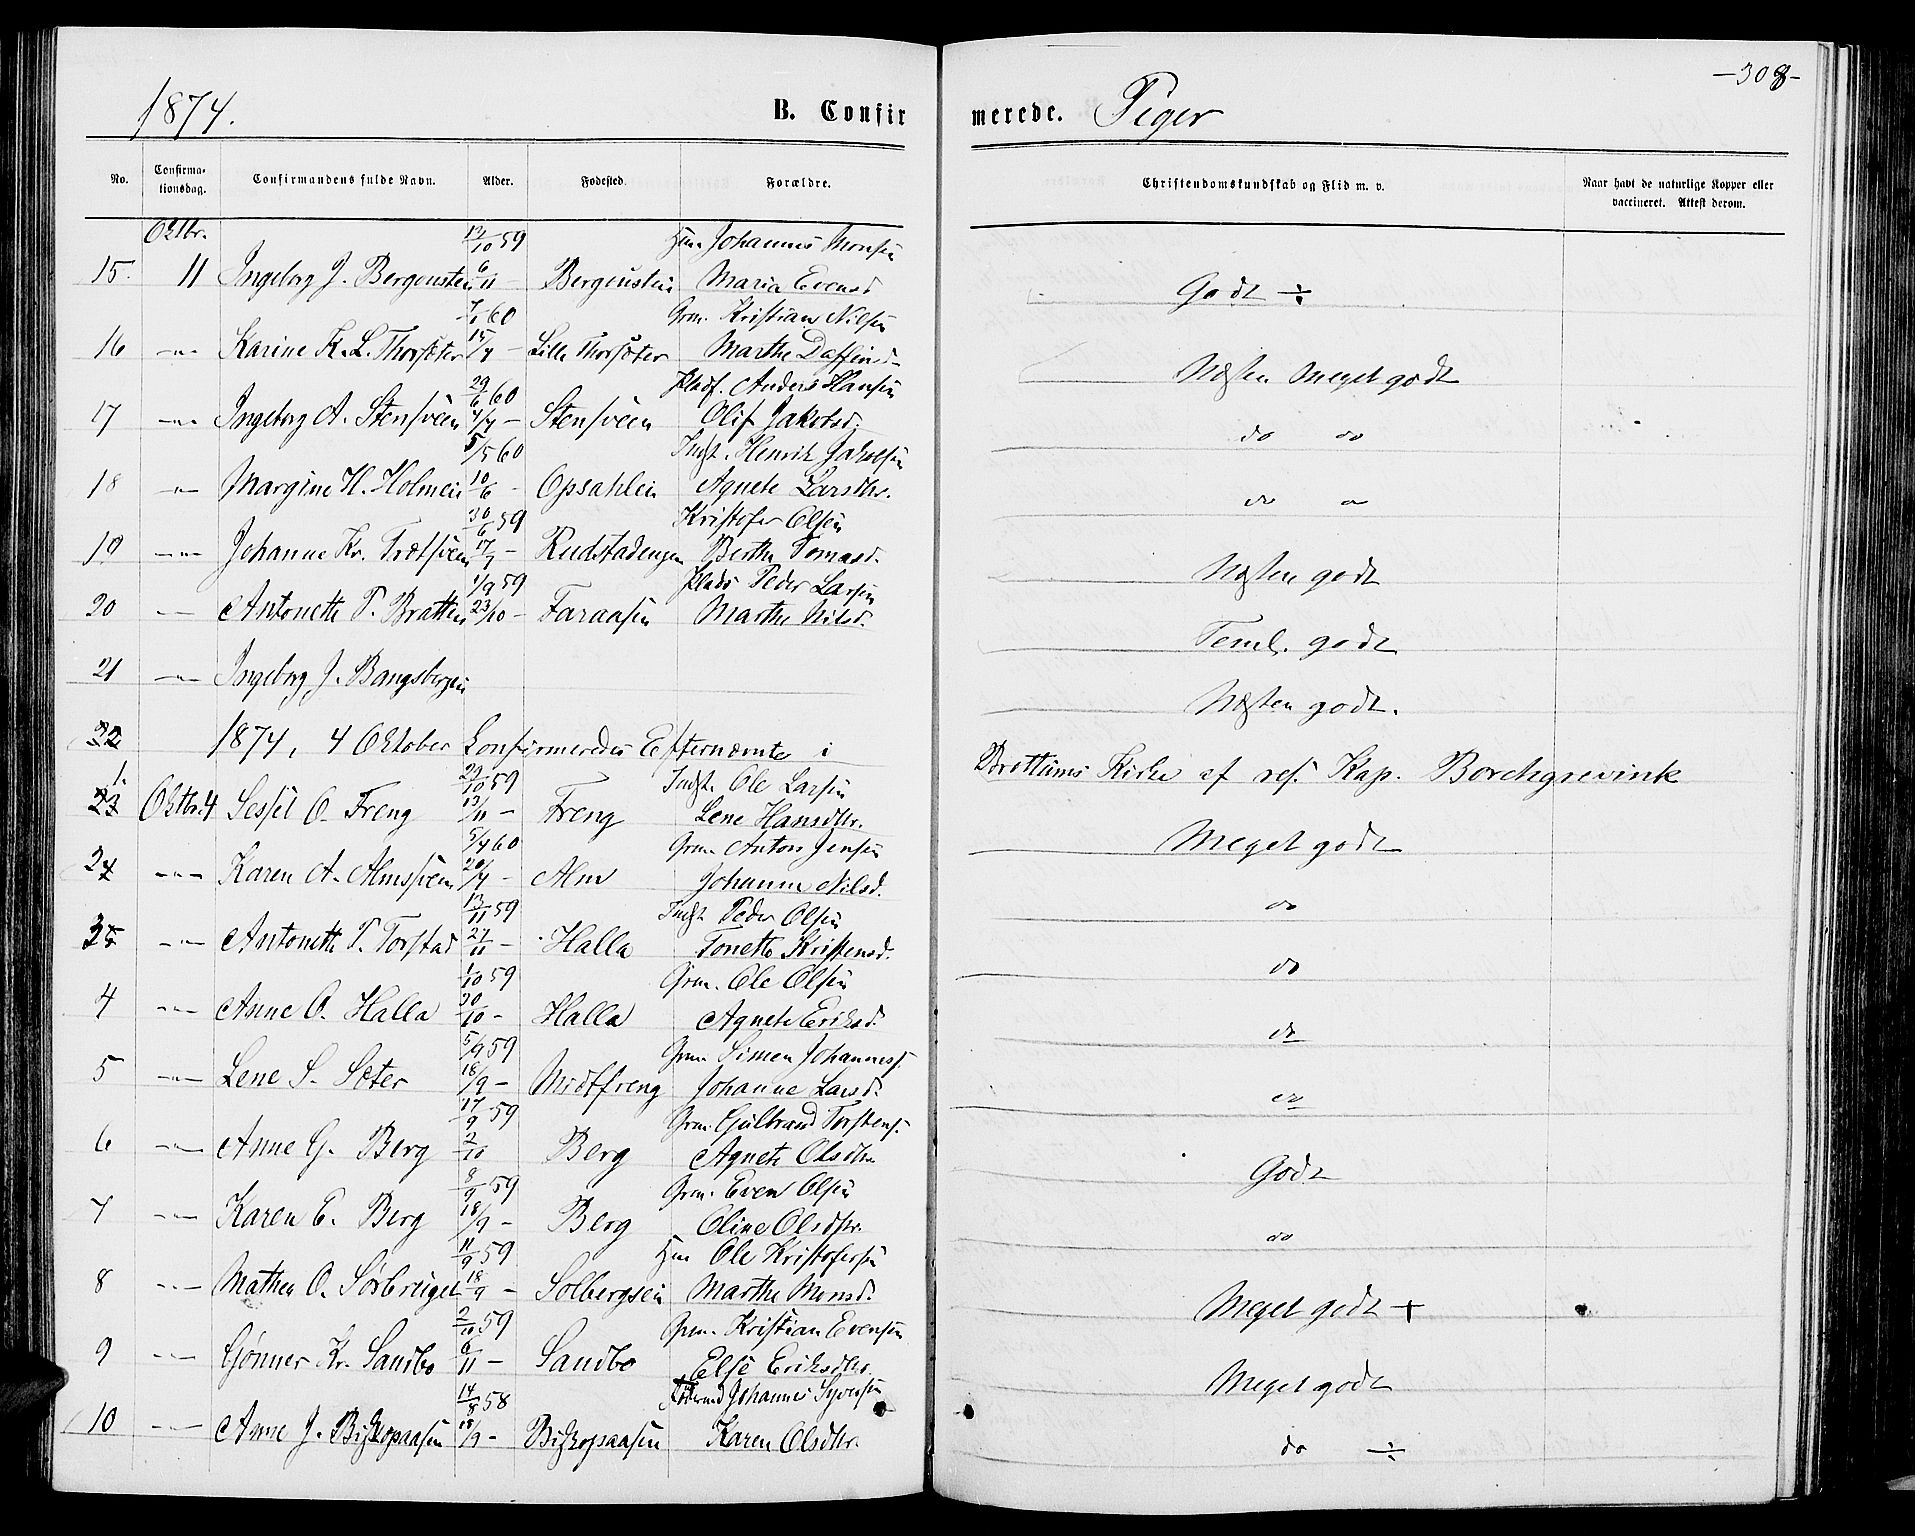 1874.
B. Confir merede. Piger
-308-
No. Confirma-tionsdag. Confirmandens fulde Navn. Alder. Fødested. Forældre. Christendomskundskab og Flid m. v. Naar havt de naturlige Kopper eller vaccineret. Attest derom.
Oktbr. 13/10 59 Hm. Johannes Monsen
15. 11 Ingeborg J. Bergensten 6/11 - Bergenstein Maria Evensd Godt ÷
60 Grm. Kristian Nilsen
16 -"- Karine K. L. Thorsæter 15/4 - Lille Thorsæter Marthe Daffind. Næsten Meget godt
29/6 60 Pladsf. Anders Hansen
17 -"- Ingeborg A. Stensveen 4/7 - Stensveen Olif Jakobsd. do do
5/5 60 Indst. Henrik Jakobsen
18 -"- Margine H. Holmen 10/6 - Opsahlein Agnete Larsdtr. do do
30/6 59 Kristofer Olsen
19 -"- Johanne Kr. Trætsveen 17/7 - Rudstadengen Berthe Tomasd. Næsten godt
1/9 59 Plads Peder Larsen
20 -"- Antonette P. Bratten 23/10 - Faraasen Marthe Nilsd. Teml. godt
21 -"- Ingeborg J. Bangsbergen Næsten godt.
22 1874, 4 Oktober Confirmeredes Efternævnte i Brøttums Kirke af res. Kap. Borchgrevink
1. 29/10 59 Indst. Ole Larsen
23 Oktbr. 4 Sessil O. Freng 13/11 - Freng Lene Hansdtr. Meget godt
5/4 60 Grm. Anton Jensen
2 -"- Karen A. Almsveen 20/4 - Alm Johanne Nilsd. do
13/11 59 Indst Peder Olsen
3 -"- Antonette P. Torstad 27/11 - Halla Tonette Kristensd. do
1/10 59 Grm. Ole Olsen
4 -"- Anne O. Halla 30/10 - Halla Agnete Eriksd. do
5/9 59 Grm. Simen Johanness.
5 -"- Lene S. Sæter 18/9 - Midtfreng Johanne Larsd. do
17/9 59 Grm. Gulbrand Torstens.
6 -"- Anne G. Berg 2/10 Berg Agnete Olsdtr Godt
8/9 59 Grm. Even Olsen
7 -"- Karen E. Berg 18/9 - Berg Oline Olsdtr. do
11/9 59 Hm Ole Kristofersen
8 -"- Mathea O. Sørbreiget 18/9 - Solbergseien Marthe Monsd. Meget godt +
2/10 59 Grm. Kristian Evensen
9 -"- Gønner Kr. Sandbo 6/11 - Sandbo Else Eriksdtr. Meget godt
14/8 58 Johannes Syversen
10 -"- Anne J. Biskopaasen 18/9 - Biskopaasen Karen Olsdtr. do ÷